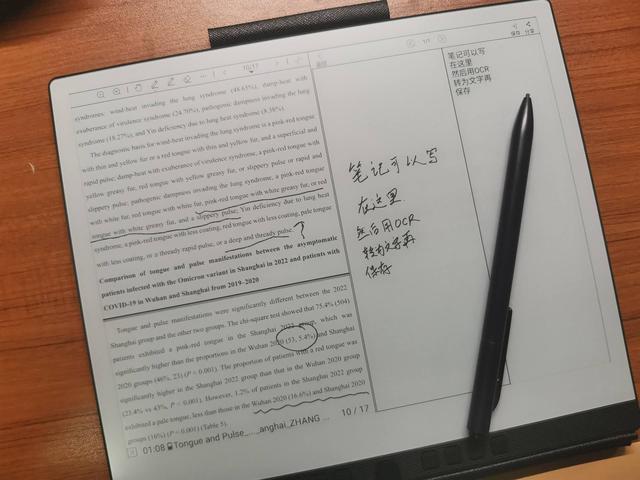 10/17
syndromes: wind-heat invading the lung syndrome (48.63%), damp-heat with
exuberance of virulence syndrome (24.70%), pathogenic dampness invading the lung
syndrome (18.27%), and Yin deficiency due to lung heat syndrome (8.38%).
The diagnosis basis for wind-heat invading the lung syndrome is a pink-red tongue
with thin and yellow fur or a red tongue with thin and yellow fur, and a superficial and
rapid pulse; damp-heat with exuberance of virulence syndrome, a pink-red tongue with
yellow greasy fur, red tongue with yellow greasy fur, or slippery pulse or rapid and
slippery pulse; pathogenic dampness invading the lung syndrome, a pink-red tongue
with white fur, red tongue with white fur, pink-red tongue with white greasy fur, or red
tongue with white greasy fur, and a slippery pulse; Yin deficiency due to lung heat
syndrome, a pink-red tongue with less coating, red tongue with less coating, pale tongue
with less coating, or a thready rapid pulse, or a deep and thready pulse. ?
Comparison of tongue and pulse manifestations between the asymptomatic
patients infected with the Omicron variant in Shanghai in 2022 and patients with
COVID-19 in Wuhan and Shanghai from 2019–2020
Tongue and pulse manifestations were significantly different between the 2022
Shanghai group and the other two groups. The chi-square test showed that 75.4% (504)
patients exhibited a pink-red tongue in the Shanghai 2022 group, which was
significantly higher than the proportions in the Wuhan 2020 (53, 5.4%) and Shanghai
2020 groups (46%, 23) (P < 0.001). The proportion of patients with a red tongue was
significantly higher in the Shanghai 2022 group than that in the Wuhan 2020 group
(23.4% vs 43%, P < 0.001). However, 1.2% of patients in the Shanghai 2022 group
exhibited a pale tongue, less than those in the Wuhan 2020 (16.6%) and Shanghai 2020
groups (16%) (P = 0.001) (Table 5).
10 / 17
01:08 Tongue and Pulse_..._anghai_ZHANG ...
1/1
笔记可以写
在这里
然后用OCR
转为文字再
保存
保存 分享
笔记可以写
在这里
然后用OCR
转为文字再
保存